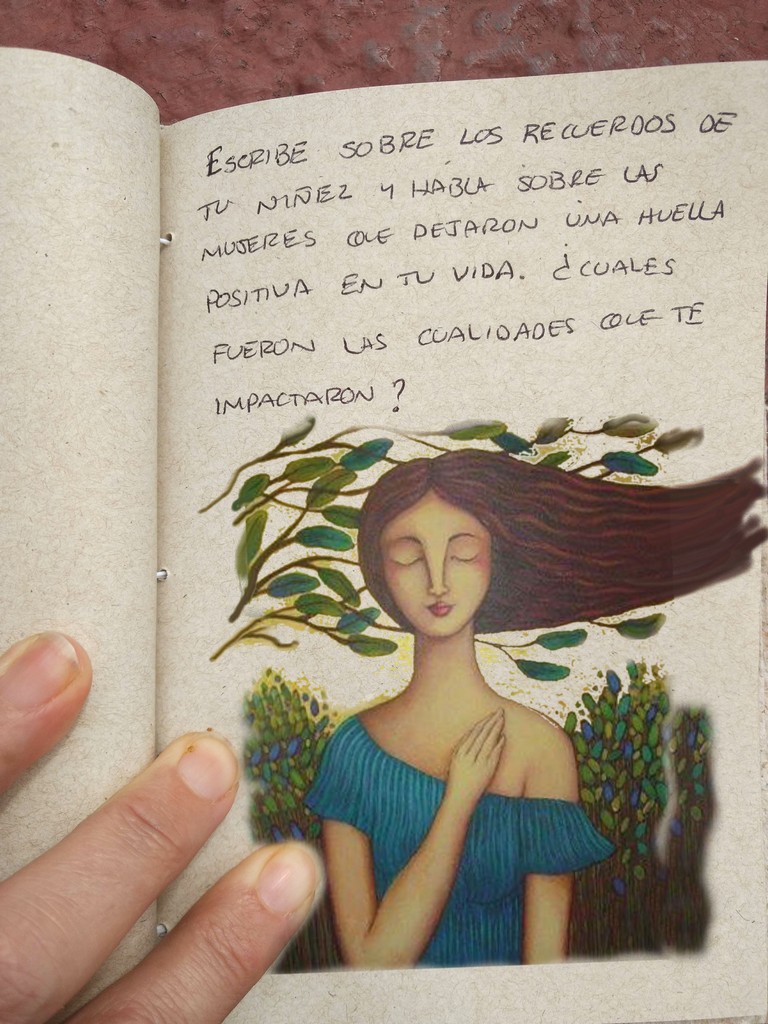 ESCRIBE SOBRE LOS RECUERDOS DE
TU NIÑEZ Y HABLA SOBRE LAS
MUJERES QUE DEJARON UNA HUELLA
POSITIVA EN TU VIDA. ¿CUALES
FUERON LAS CUALIDADES QUE TE
IMPACTARON?